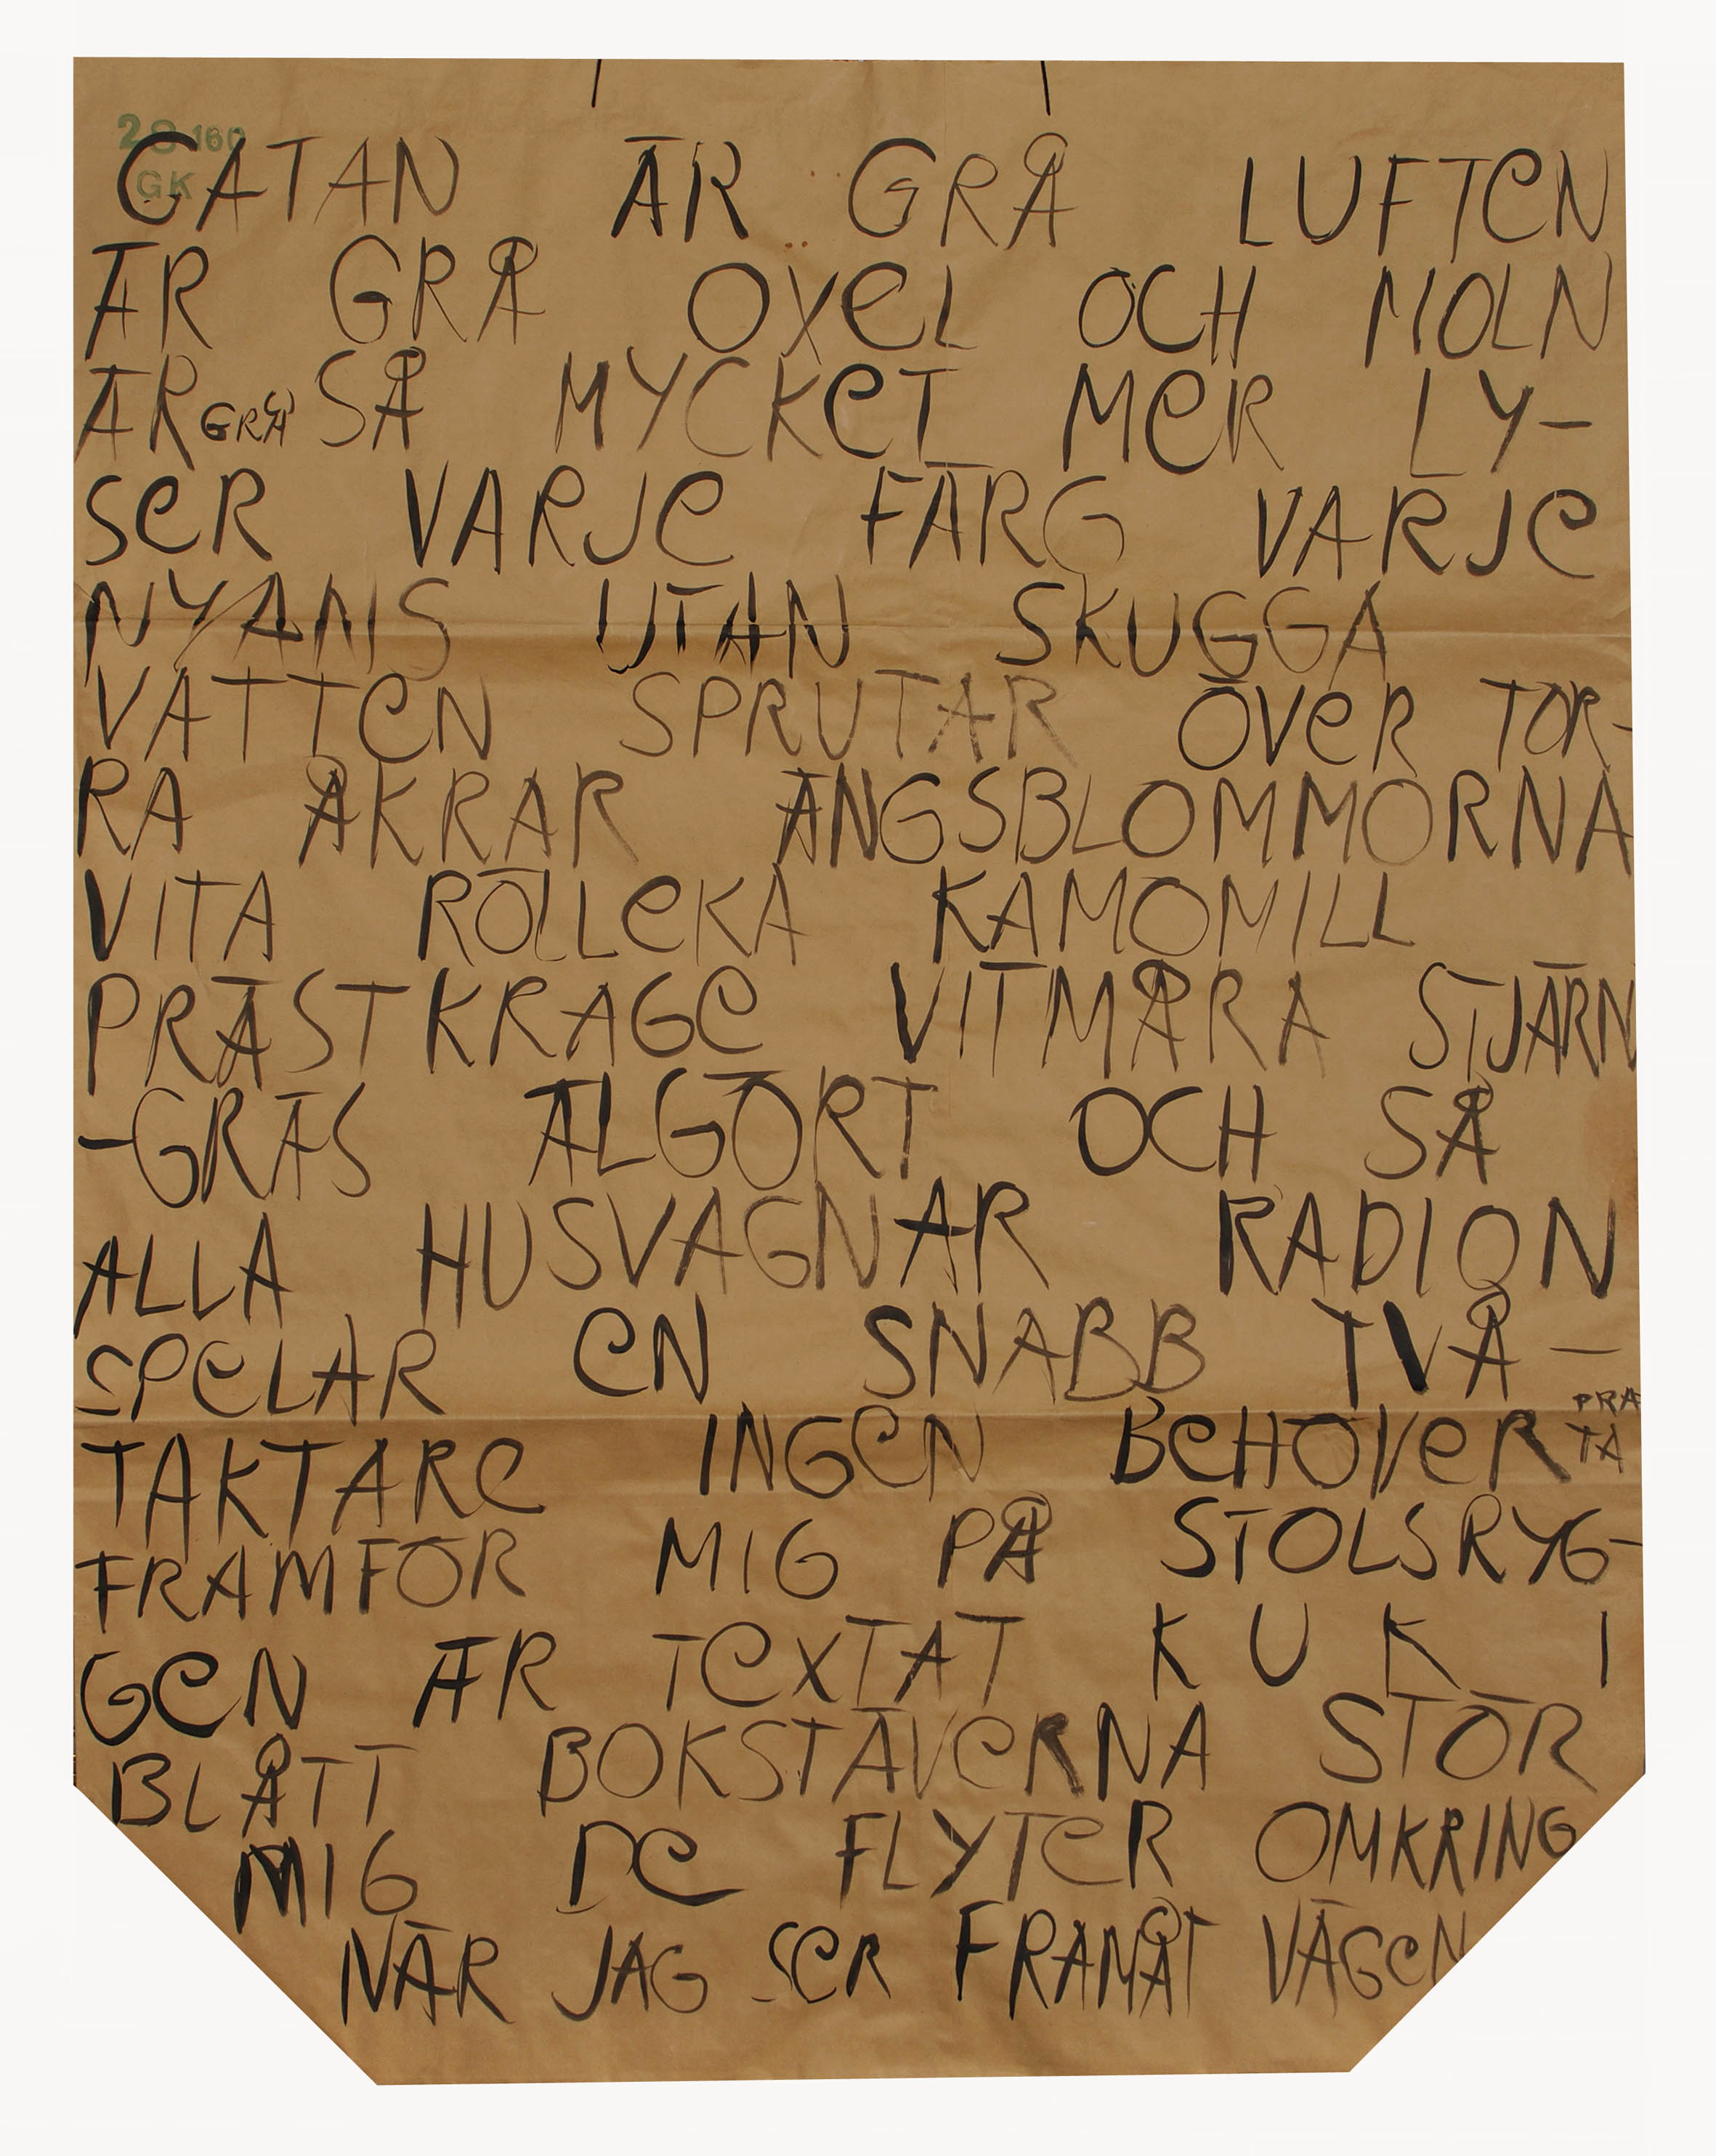 28 160
GK
GATAN ÄR GRÅ LUFTEN
ÄR GRÅ OXEL OCH MOLN
ÄR GRÅ SÅ MYCKET MER LY-
SER VARJE FÄRG VARJE
NYANS UTAN SKUGGA
VATTEN SPRUTAR ÖVER TOR-
RA ÅKRAR ÄNGSBLOMMORNA
VITA RÖLLEKA KAMOMILL
PRÄSTKRAGE VITMÅRA STJÄRN
-GRÄS ÄLGÖRT OCH SÅ
ALLA HUSVAGNAR RADION
SPELAR EN SNABB TVÅ-
TAKTARE INGEN BEHÖVER PRATA
FRAMFÖR MIG PÅ STOLSRYG-
GEN ÄR TEXTAT K U K I
BLÅTT BOKSTÄVERNA STÖR
MIG DE FLYTER OMKRING
NÄR JAG SER FRAMÅT VÄGEN